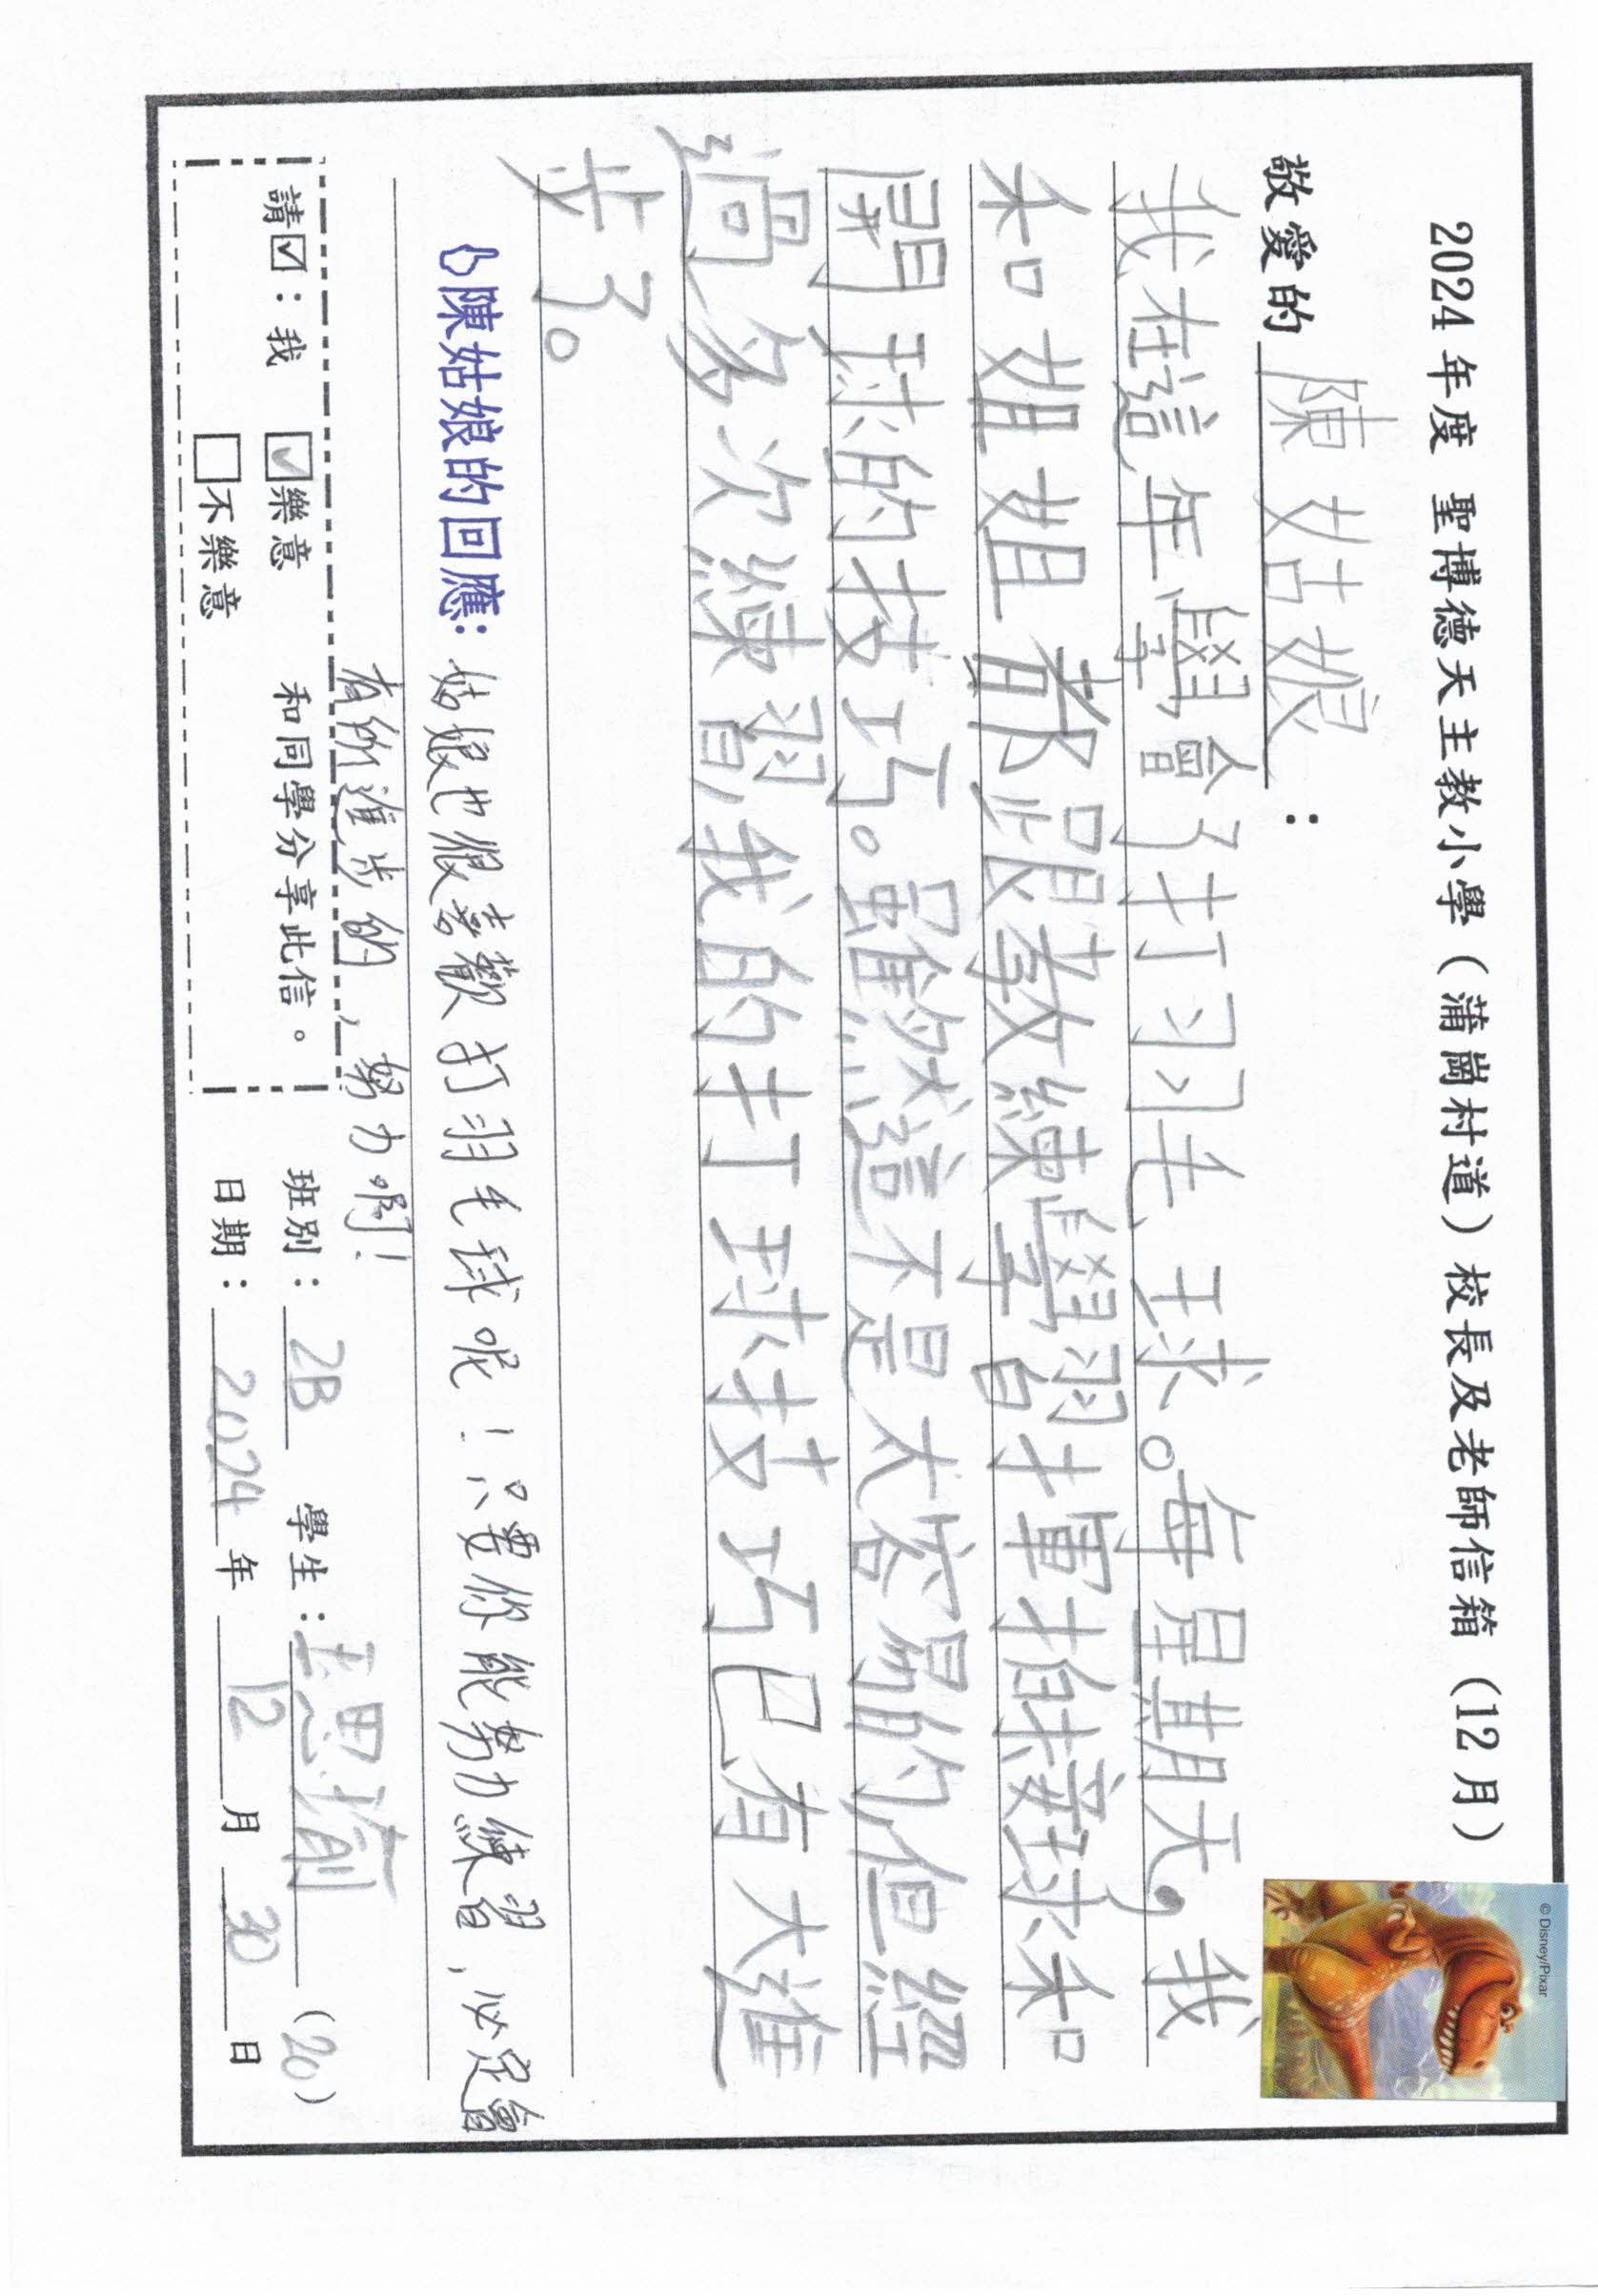 2024 年度 聖博德天主教小學（蒲崗村道）校長及老師信箱（12 月）
© Disney/Pixar
敬愛的 陳姑娘 ：
我在這年學會了打羽毛球。每星期天，我
和姐姐都跟教練學習揮拍、接球和
開球的技巧。雖然這不是太容易的，但經
過多次練習，我的打球技巧已有大進
步了。
陳姑娘的回應：姑娘也很喜歡打羽毛球呢！只要你能努力練習，必定會
有所進步的，努力啊！
請☑：我 ☑樂意 和同學分享此信。
□不樂意
班別：2B 學生：思瑜（20）
日期：2024 年 12 月 30 日